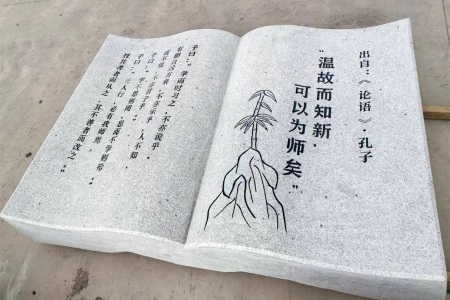 出自：《论语》·孔子
“温故而知新，
可以为师矣”
子曰：“学而时习之，不亦说乎，
有朋自远方来，不亦乐乎，人不知
而不愠，不亦君子乎。”
子曰：“学而不思则罔，思而不学则殆”
子曰：“三人行，必有我师焉，
择其善者而从之，其不善者而改之。”